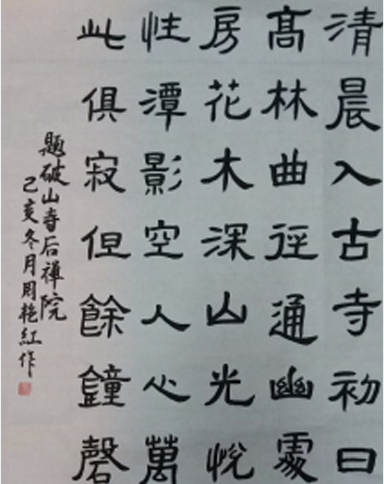 清晨入古寺初日
髙林曲徑通幽處
房花木深山光悅
性潭影空人心萬
此俱寂但餘鐘磬
題破山寺后禪院
己亥冬月周艳紅作